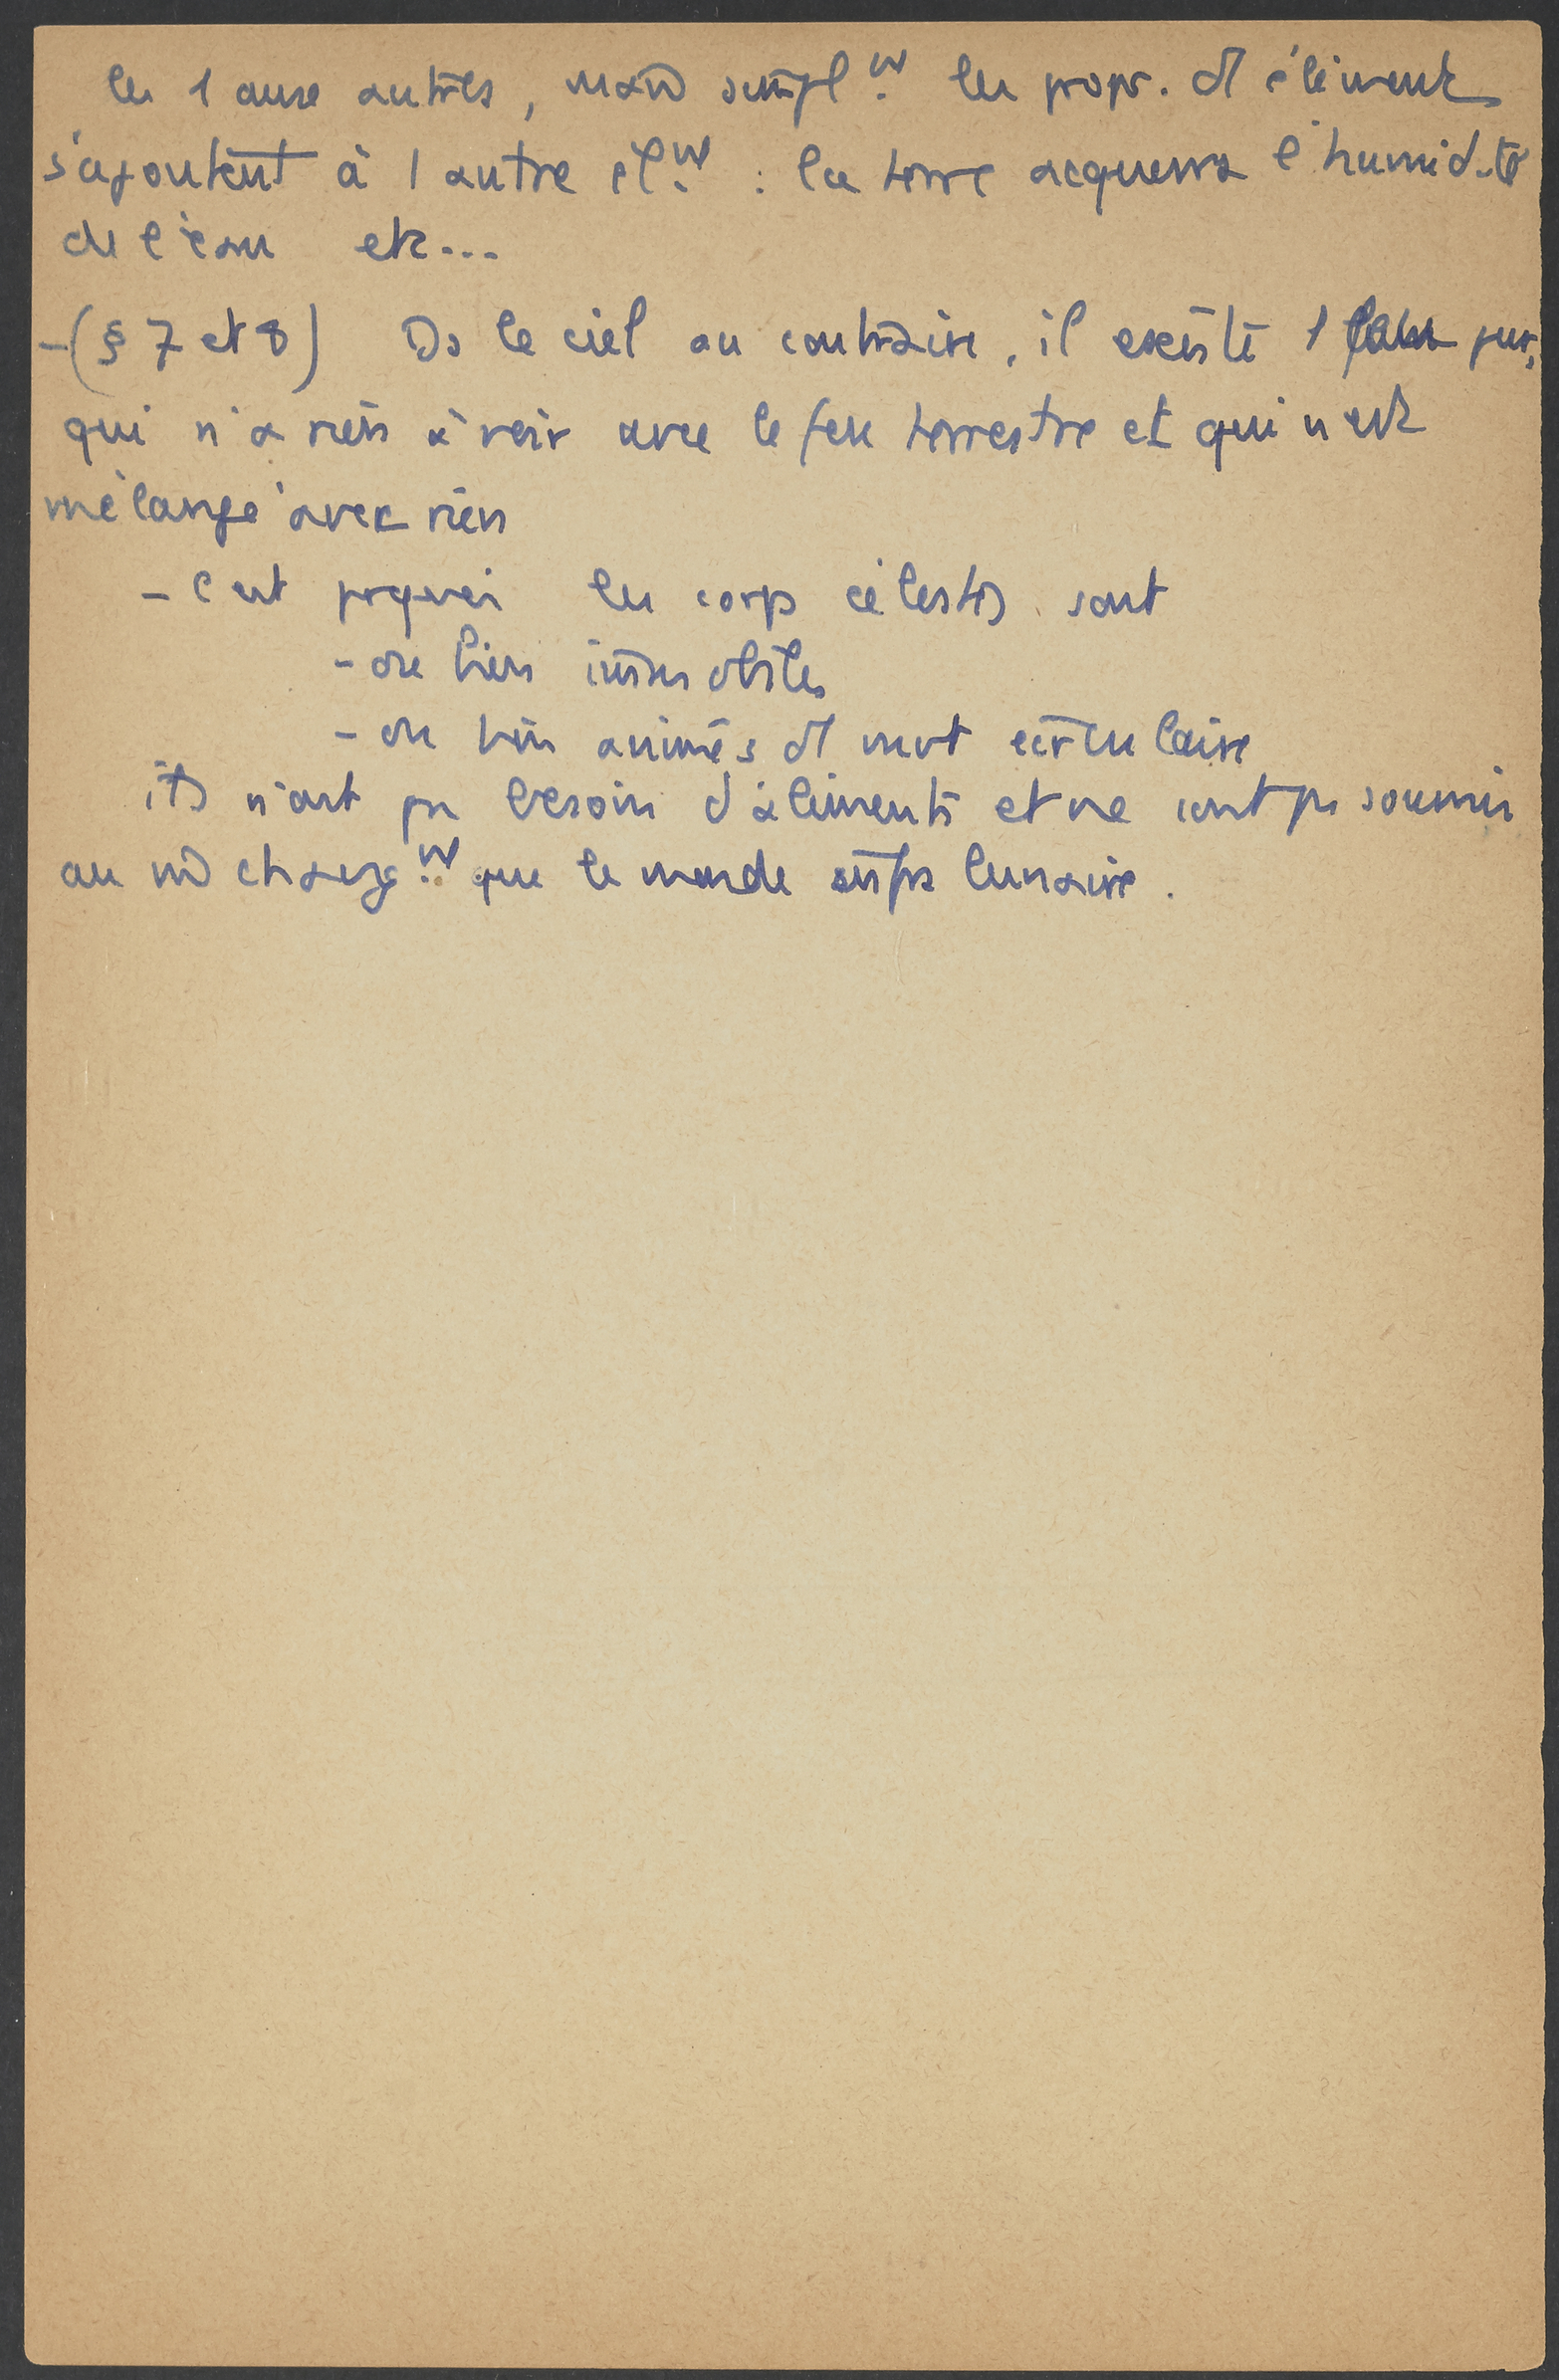 les 1 aux autres, mais simplnt les propr. d'1 élément
s'ajoutent à l'autre élnt : la terre acquerra l'humidité
de l'eau etc...
- (§ 7 et 8) Ds le ciel au contraire, il existe 1 pur,
qui n'a rien à voir avec le feu terrestre et qui n'est
mélangé avec rien
- C'est prquoi les corps célestes sont
- ou bien immobiles
- ou bien animés d'1 mvt circulaire
ils n'ont pas besoin d'aliments et ne sont pas soumis
au m̂ changnt que le monde lunaire.